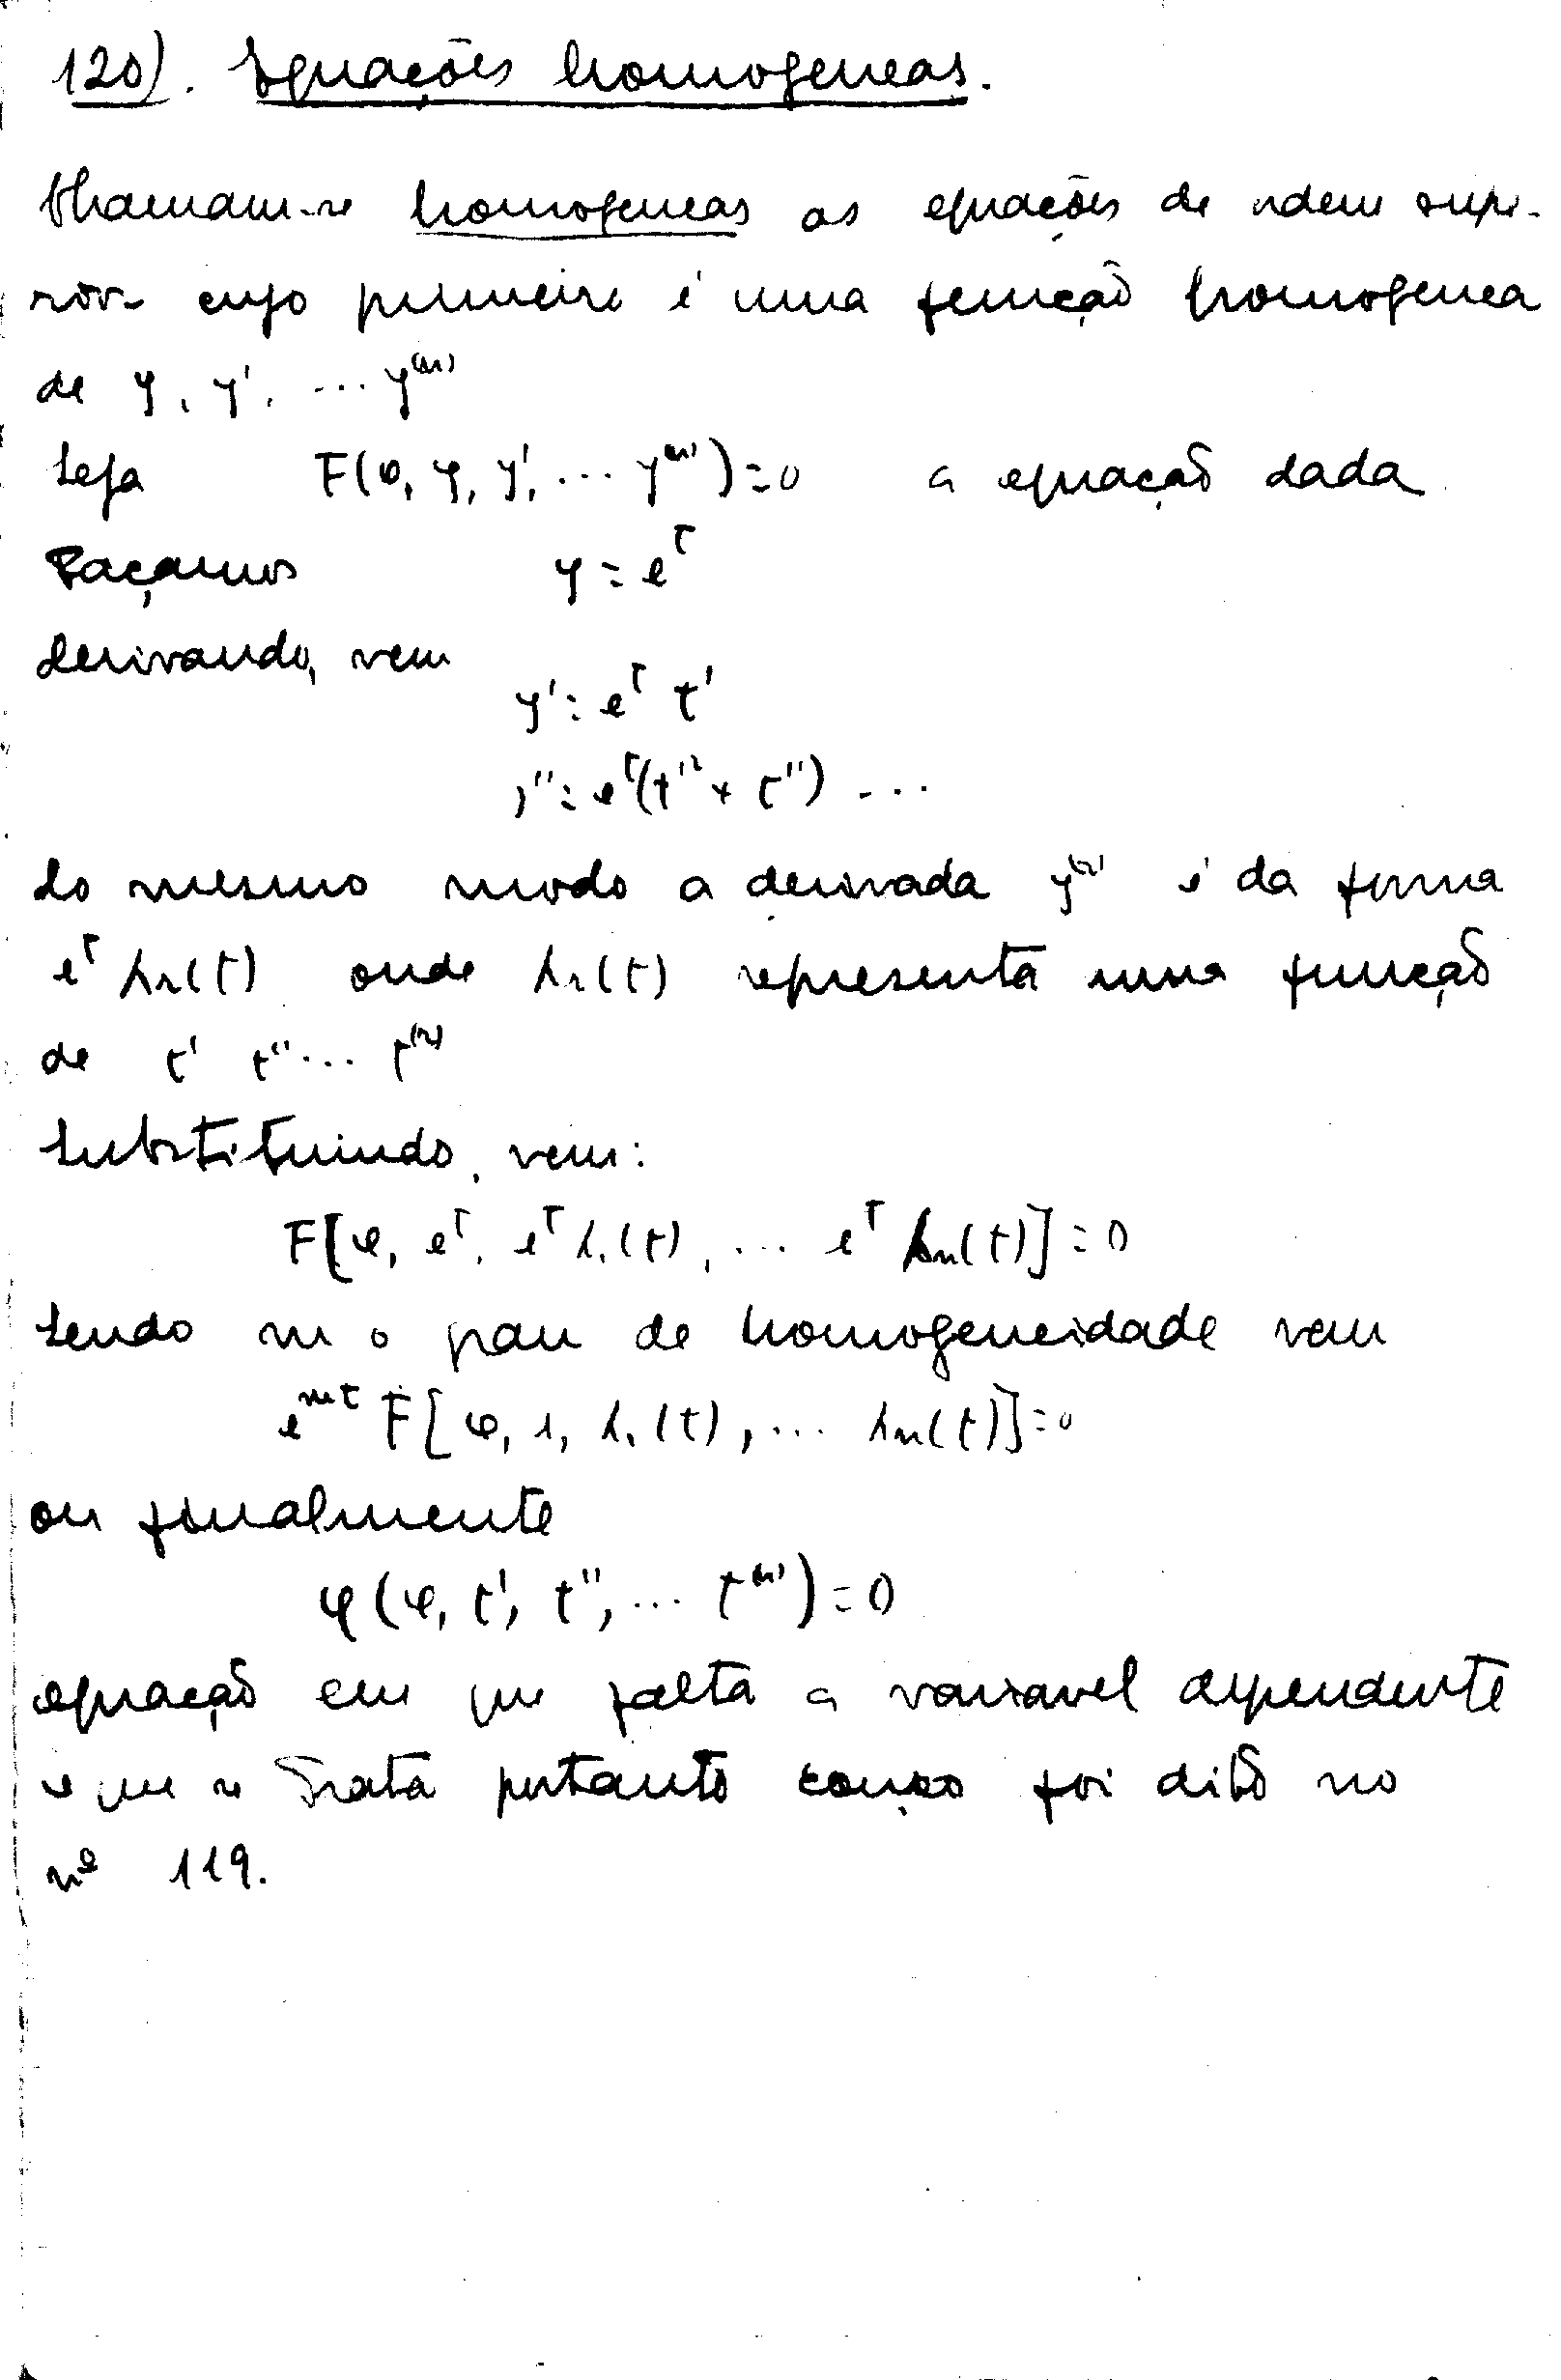 120). Equações homogeneas.
Chamam-se homogeneas as equações de ordem supe-
rior cujo primeiro é uma função homogenea
de y, y', ... y⁽ⁿ⁾
Seja F(x, y, y', ... y⁽ⁿ⁾) = 0 a equação dada
Façamos y = eᵗ
derivando, vem
y' = eᵗ t'
y'' = eᵗ(t'² + t'') ...
do mesmo modo a derivada y⁽ʳ⁾ é da forma
eᵗ λr(t) onde λr(t) representa uma função
de t' t'' ... t⁽ʳ⁾
Substituindo, vem:
F[x, eᵗ, eᵗ λ₁(t), ... eᵗ λn(t)] = 0
Sendo m o grau de homogeneidade vem
eᵐᵗ F[x, 1, λ₁(t), ... λn(t)] = 0
ou finalmente
φ(x, t', t'', ... t⁽ⁿ⁾) = 0
equação em que falta a variavel dependente
e que se trata portanto como foi dito no
nº 119.